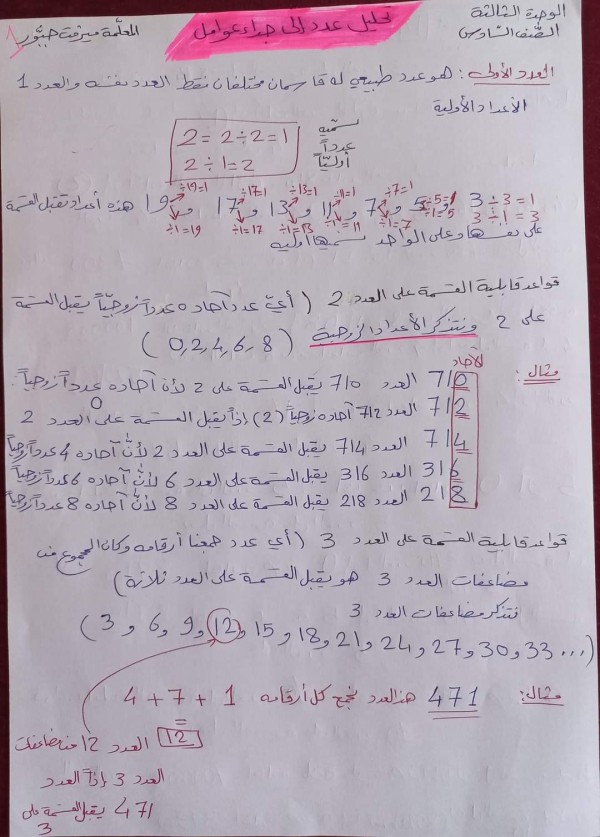 الوحدة الثالثة
الصّف السّادس
تحليل عدد إلى جداء عوامل
المعلّمة ميرفت جبّور
العدد الأوّلي: هو عدد طبيعي له قاسمان مختلفان فقط العدد نفسه والعدد 1
الأعداد الأولية
2 = 2÷2=1
2÷1=2
نسمّيه
عدداً
أوليّاً
3÷3=1
3÷1=3
5 ÷5=1 ÷1=5
و 7 ÷7=1 ÷1=7
و 11 ÷11=1 ÷1=11
و 13 ÷13=1 ÷1=13
و 17 ÷17=1 ÷1=17
و 19 ÷19=1 ÷1=19
هذه أعداد تقبل القسمة
على نفسها وعلى الواحد نسميها أولية
قواعد قابلية القسمة على العدد 2 (أيّ عدد آحاده عدداً زوجيّاً يقبل القسمة
على 2 ونتذكر الأعداد الزوجية (0,2,4,6,8)
الآحاد
مثال: 710 العدد 710 يقبل القسمة على 2 لأن آحاده عدداً زوجياً.
0
712 العدد 712 آحاده زوجياً (2) إذاً يقبل القسمة على العدد 2
714 العدد 714 يقبل القسمة على العدد 2 لأنّ آحاده 4 عدداً زوجياً
316 العدد 316 يقبل القسمة على العدد 6 لأنّ آحاده 6 عدداً زوجياً
218 العدد 218 يقبل القسمة على العدد 8 لأنّ آحاده 8 عدداً زوجياً
قواعد قابلية القسمة على العدد 3 (أي عدد جمعنا أرقامه وكان المجموع من
مضاعفات العدد 3 هو يقبل القسمة على العدد ثلاثة)
نتذكر مضاعفات العدد 3
(3 و 6 و 9 و 12 و 15 و 18 و 21 و 24 و 27 و 30 و 33 ...)
مثال: 471 هذا العدد نجمع كل أرقامه 4 + 7 + 1
=
12 العدد 12 من مضاعفات
العدد 3 إذاً العدد
471 يقبل القسمة على
3